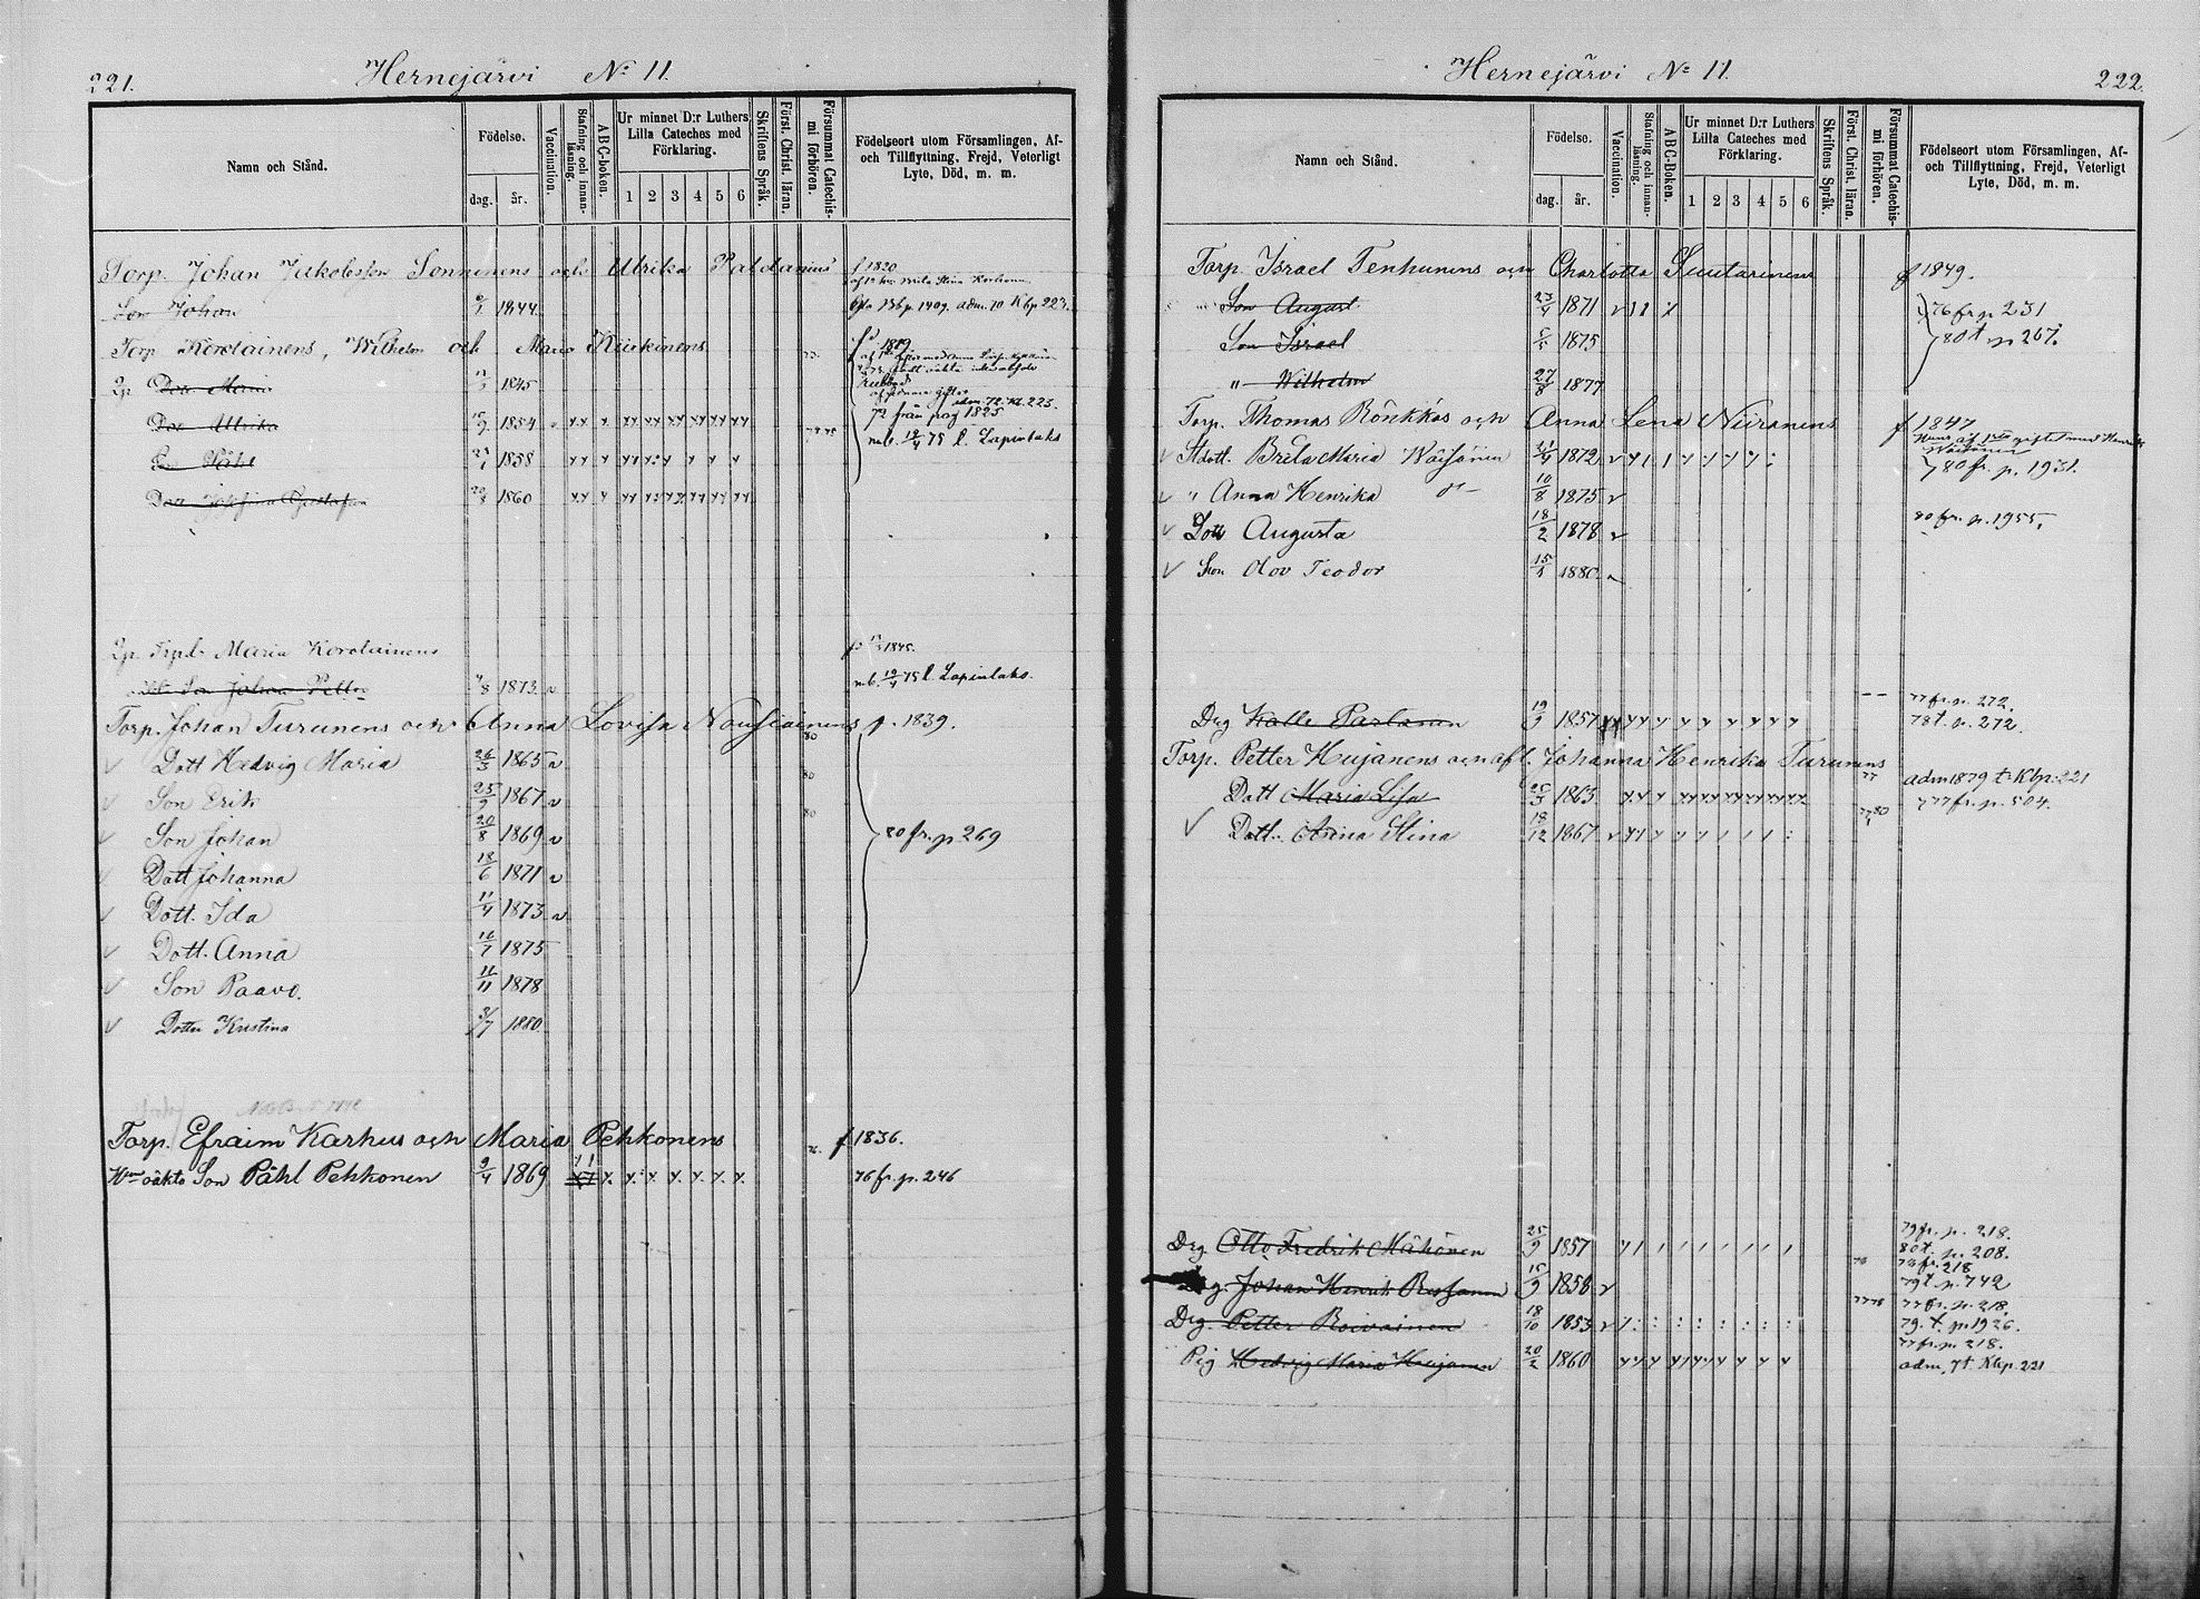 221.
Hernejärvi № 11.
Namn och Stånd.
Födelse.
dag.
år.
Vaccination.
Stafning och innan-läsning.
ABC-boken.
Ur minnet D:r Luthers Lilla Cateches med Förklaring.
1 2 3 4 5 6
Skriftens Språk.
Först. Christ. läran.
Försummat Catechis-mi förhören.
Födelseort utom Församlingen, Af- och Tillflyttning, Frejd, Veterligt Lyte, Död, m. m.
Torp. Johan Jakobsson Sonninens och Ulrika Paldanius f 1820
Son Johan 1844 adm. 70 Kbp 223.
Torp Korolainens, Wilhelm och Maria Kiiskinens 1819
Dott. Maria 1845 adm. 72. Kb. 223.
Dott Ulrika 1854 72 från pag 1825
Son Påhl 1858 mb. 19/4 75 t. Lapinlaks
Dott Josefina Gustafva 1860
Trpd. Maria Korolainens 1845.
Son Johan Petter 1873 mb. 19/4 75 t. Lapinlaks.
Torp. Johan Turunens och Anna Lovisa Nousiainens f. 1839.
Dott Hedvig Maria 26/3 1865 v
Son Erik 25/9 1867 v
Son Johan 20/8 1869 v 80 fr. p 269
Dott Johanna 18/6 1871 v
Dott. Ida 11/4 1873 v
Dott. Anna 16/7 1875
Son Paavo. 11/11 1878
Dotter Kristina 3/7 1880
Torp. Efraim Karhus och Maria Pekkonens f 1836.
Hns oäkta Son Påhl Pekkonen 9/4 1869 76 fr. p. 246
Hernejärvi № 11.
222.
Namn och Stånd.
Födelse.
dag.
år.
Vaccination.
Stafning och innan-läsning.
ABC-Boken.
Ur minnet D:r Luthers Lilla Cateches med Förklaring.
1 2 3 4 5 6
Skriftens Språk.
Först. Christ. läran.
Försummat Catechis-mi förhören.
Födelseort utom Församlingen, Af- och Tillflyttning, Frejd, Veterligt Lyte, Död, m. m.
Torp. Israel Tenhunens och Charlotta Suutarinens f 1849.
Son August 23/4 1871 v 76 fr p 231
Son Israel 5/5 1875 80 t p 267.
" Wilhelm 27/8 1877
Torp. Thomas Rönkkös och Anna Lena Niiranens f 1847
Hans af 1sta giftet med Henrik Wäisänen
Stdott. Brita Maria Wäisänen 1872 v 80 fr. p. 1931.
" Anna Henrika 10/8 1875 v
Dott Augusta 18/2 1878 v 80 fr. p. 1955.
Son Olov Teodor 15/1 1880
77 fr. p. 272.
Drg Kalle Partanen 19/9 1857 78 t. p. 272.
Torp. Petter Hujanens och afl. Johanna Henrika Turunens
adm 1879 t. Kbp. 221
Dott Maria Lisa 1863 77 fr. p. 504.
Dott. Anna Stina 18/12 1867
79 fr. p. 218.
Drg Otto Fredrik Mähönen 25/9 1857 80 t. p. 208.
78 fr. 218
Drg. Johan Henrik Rissanen 15/9 1858 v 79 t. p. 742
77 fr. p. 218.
Drg. Petter Roivainen 18/10 1853 79. t. p. 1926.
77 fr. p. 218.
Pig Hedvig Maria Hujanen 20/2 1860 adm. 7 t. Kbp. 221